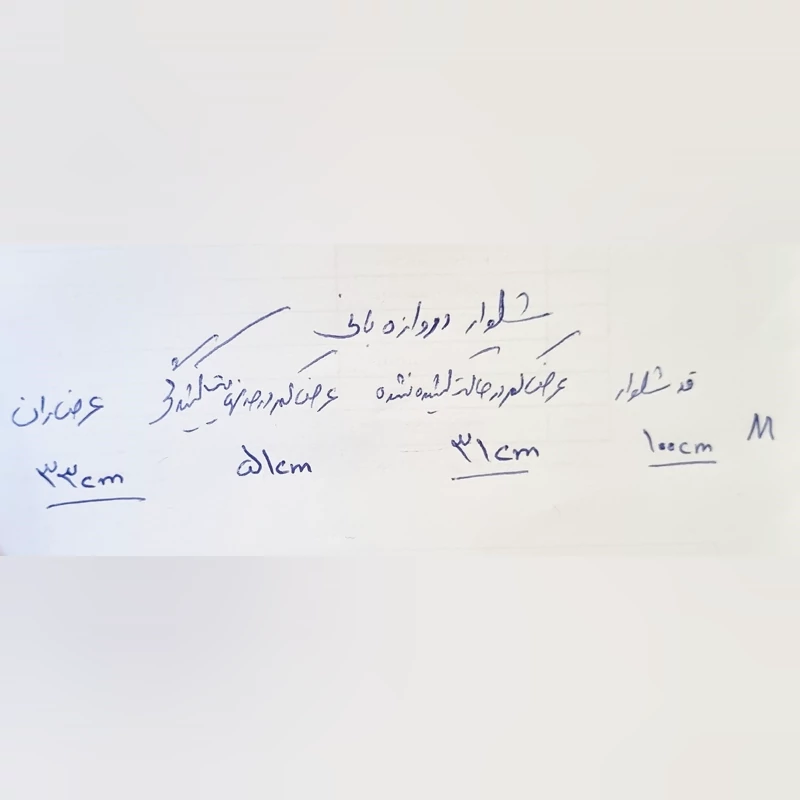 شلوار دروازه بانی
قد شلوار عرض کمر در حالت کشیده نشده عرض کمر در حد نهایت کشیدگی عرض ران
M ۱۰۰cm ۳۱cm ۵۱cm ۳۳cm